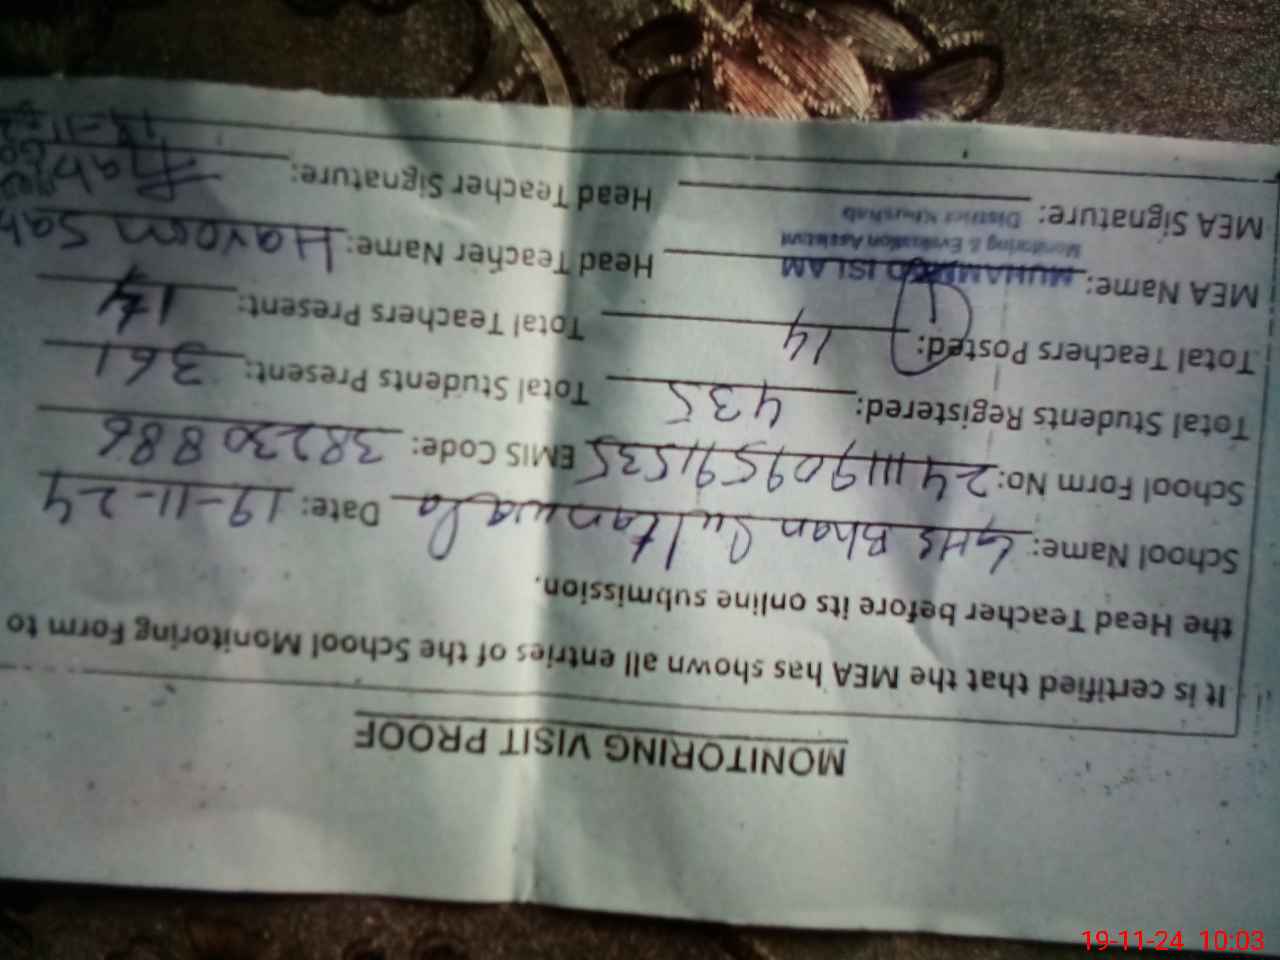 MONITORING VISIT PROOF
It is certified that the MEA has shown all entries of the School Monitoring Form to
the Head Teacher before its online submission.
School Name: GHS Bhan Sultanwala Date: 19-11-24
School Form No: 241119095911535 EMIS Code: 38230886
Total Students Registered: 435 Total Students Present: 361
Total Teachers Posted: 14 Total Teachers Present: 14
MEA Name: MUHAMMAD ISLAM Head Teacher Name: Haroon
Monitoring & Evaluation Assistant
District Khushab
MEA Signature: Head Teacher Signature:
19-11-24 10:03